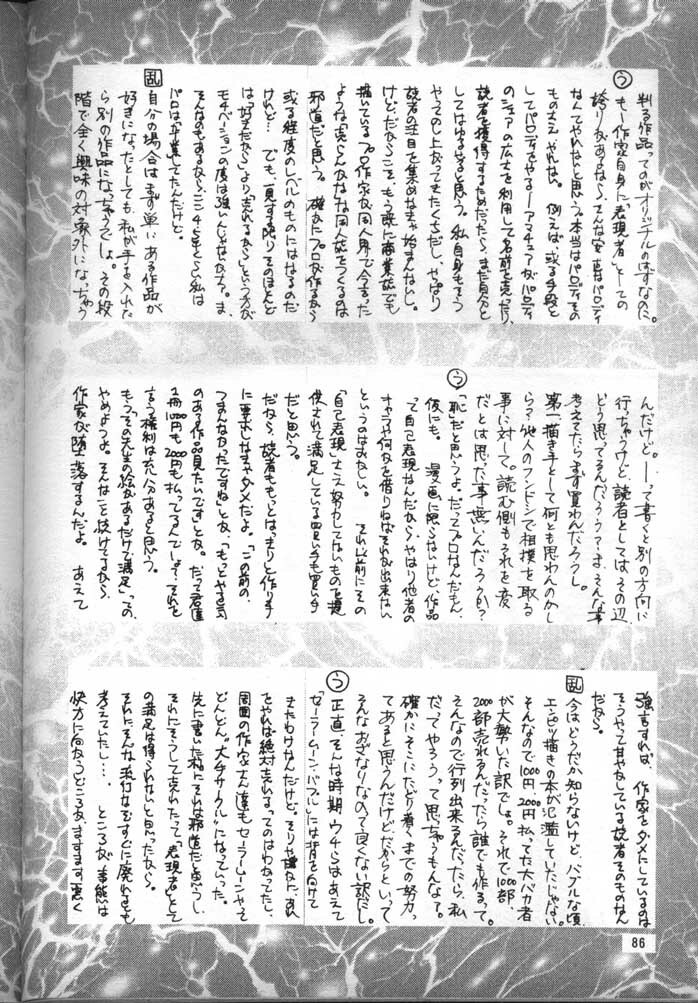 う
判る作品ってのがオリジナルのはずなのに。
もし作家自身に「表現者」としての
誇りがあるなら、そんな安直なパロディ
なんてやれないと思う。本当はパロディその
ものさえやれない。例えば、或る手段と
してパロディをやる―アマチュアがパロディ
のシェアの広さを利用して名前を売ったり、
読者を獲得するためだったら、まだ自分と
してはゆるせると思う。私自身もそう
やってのし上がってきたくちだし、やっぱり
読者の注目を集めなきゃ始まんないし。
けど、だからこそ、もう既に商業誌でも
描いているプロ作家が同人界で今さらった
ような売らんかなな同人誌をつくるのは
邪道だと思う。確かにプロが作るから
或る程度のレベルのものにはなるのだ
けれど…でも、一見する限りそのほとんど
は「好きだから」より「売れるから」という方が
モチベーションの度は強いんじゃないか?。ま、
そんなのもあるから、ここ3~4年くらい私は
パロは“卒業”してたんだけど。
乱
自分の場合はまず単にある作品が
好きになったとしても、私が手を入れた
ら別の作品になっちゃうでしょ。その段
階で全く興味の対象外になっちゃう
んだけど。―って書くと別の方向に
行っちゃうけど読者としてはその辺
どう思ってるんだろうか?…ま、そんな事
考えてたらまず買わんだろうし。
第一描き手として何とも思わんのかし
ら?他人のフンドシで相撲を取る
事に対して。読む側もそれを変
だとは思った事無いんだろうか?
う
「恥」だと思うよ。だってプロなんだもん、
仮にも。漫画に限らないけど、作品
って自己表現なんだから、やはり他者の
キャラや何かを借りねばそれが出来ない
というのはおかしい。それ以前にその
「自己表現」さえ努力してないものを提
供されて満足している買い手も買い手
だと思う。
だから、読者ももっとはっきりと作り手
に要求しなきゃダメだよ。「この前の、
つまんなかったですね」とか、「もっとやる気
のある作品見たいです」とか。だって君達
1冊1000円も2000円も払ってるんでしょ?それを
言う権利は充分あると思う。
もう「その先生の絵があるだけで満足」っての
やめようっよ。そんなこと続けてるから、
作家が堕落するんだよ。あえて
強言すれば、作家をダメにしているのは
そうやって甘やかしている読者そのものなん
だから。
乱
今はどうだか知らないけど、バブルな頃
エンピツ描きの本が氾濫していたじゃない。
そんなので1000円、2000円払ってた大バカ者
が大勢いた訳でしょ。それで1000部、
2000部売れるんだったら誰でも作るって。
そんなので行列出来るんだったら、私
だってやろうって思っちゃうもんなァ。
確かにそこにたどり着くまでの努力っ
てあると思うんだけどだからといって
そんなおざなりなのって良くない訳だし。
う
正直、そんな時期ウチらはあえて
「セーラームーン・バブル」には背を向けて
きたわけなんだけど、そりゃ嫌なに、あれ
をやれば絶対売れるってのはわかってたし、
周囲の作家さん達もセーラームーンやって
どんどん“大手サークル”になっていった。
先に書いた様にそれは邪道だと思うし、
それにそうして売れたって「表現者」として
の満足は得られないと思ったから。
それにそんな流行なぞすぐに廃れるとも
考えていたし…。ところが事態は
快方に向かうどころか、ますます悪く
86